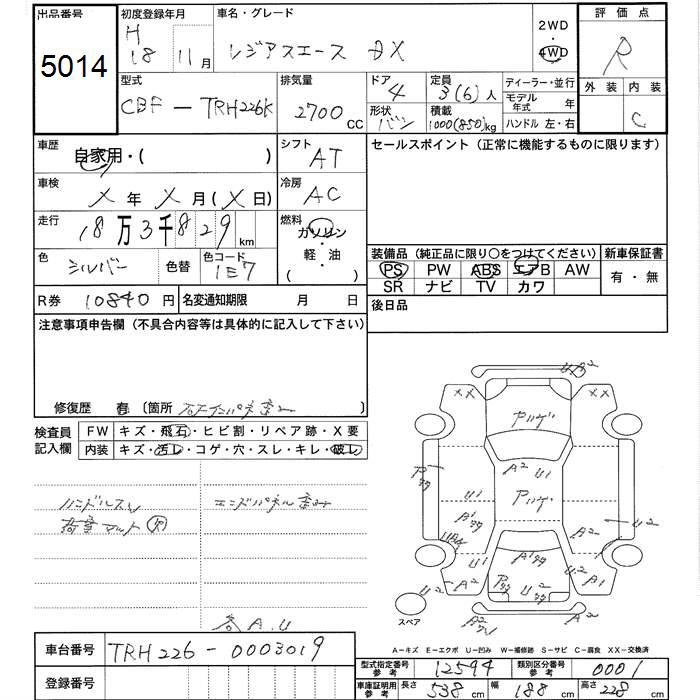 出品番号
5014
初度登録年月
H
18 11月
車名・グレード
レジアスエース DX
2WD
・
4WD
評価点
R
外装 内装
C
型式
CBF-TRH226K
排気量
2700 CC
ドア
4
形状
バン
定員
3(6)人
積載
1000(850)kg
ディーラー・並行
モデル年式 年
ハンドル 左・右
車歴
自家用・( )
シフト
AT
車検
X 年 X 月(X 日)
冷房
AC
走行
18万3千829 km
燃料
ガソリン
・
軽・油
( )
色
シルバー
色替
色コード
1E7
R券 10840円
名変通知期限 月 日
セールスポイント(正常に機能するものに限ります)
装備品(純正品に限り○をつけてください)
PS PW ABS エアB AW
SR ナビ TV カワ
新車保証書
有・無
後日品
注意事項申告欄(不具合内容等は具体的に記入して下さい)
修復歴 有 〔箇所 〕
検査員記入欄
FW キズ・飛石・ヒビ割・リペア跡・X要
内装 キズ・汚レ・コゲ・穴・スレ・キレ・破レ
ハンドルスレ
荷室マット欠
エンドパネル歪み
各A.U
XX XX
U2
アルゲ
A2 U1
アルゲ
U1
A2
U2
U1
A2
U2
U2
A1
U2
スペア
A-キズ E-エクボ U-凹み W-補修跡 S-サビ C-腐食 XX-交換済
車台番号 TRH226-0003019
登録番号
型式指定番号 参考 12594
類別区分番号 参考 0001
車庫証明用 参考 長さ 538 cm 幅 188 cm 高さ 228 cm